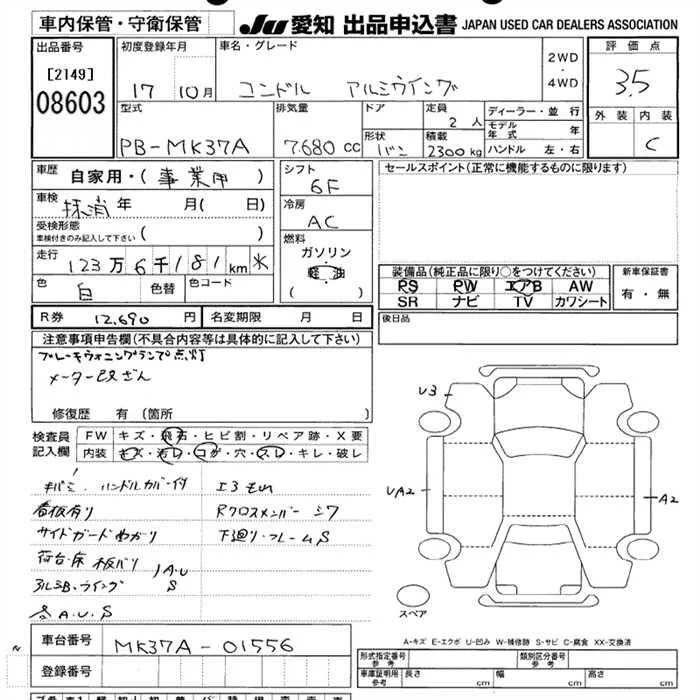 車内保管・守衛保管 JU 愛知 出品申込書 JAPAN USED CAR DEALERS ASSOCIATION
出品番号 初度登録年月 車名・グレード 評価点
[2149] 08603 17 10月 コンドル アルミウイング 2WD・4WD 3.5
型式 排気量 ドア 定員 ディーラー・並行 外装 内装
PB-MK37A 7.680 cc 形状 バン 2人 積載 2300kg モデル年式 年 ハンドル 左・右 C
車歴 自家用・(事業用) シフト 6F セールスポイント(正常に機能するものに限ります)
車検 抹消 年 月( 日) 冷房 AC
受検形態 車検付きのみ記入して下さい ( )
走行 123万6千181km ※ 燃料 ガソリン 軽油 ( )
装備品(純正品に限り○をつけてください) 新車保証書
色 白 色替 色コード PS PW エアB AW 有・無
SR ナビ TV カワシート
R券 12,690円 名変期限 月 日 後日品
注意事項申告欄(不具合内容等は具体的に記入して下さい)
ブレーキウォーニングランプ点灯
メーター改ざん
修復歴 有(箇所
検査員記入欄 FW キズ・飛石・ヒビ割・リペア跡・X要
内装 キズ・汚レ・コゲ・穴・スレ・キレ・破レ
ハンドルカバー付
看板有り Rクロスメンバー
サイドガード 下廻り・フレームS
荷台・床 板バリ A.U
アルミB.ウイング S
A.U.S
U3
UA2 A2
スペア
A-キズ E-エクボ U-凹み W-補修跡 S-サビ C-腐食 XX-交換済
車台番号 MK37A-01556
登録番号
形式指定番号 参考 類別区分番号 参考
車庫証明用 参考 長さ cm 幅 cm 高さ cm